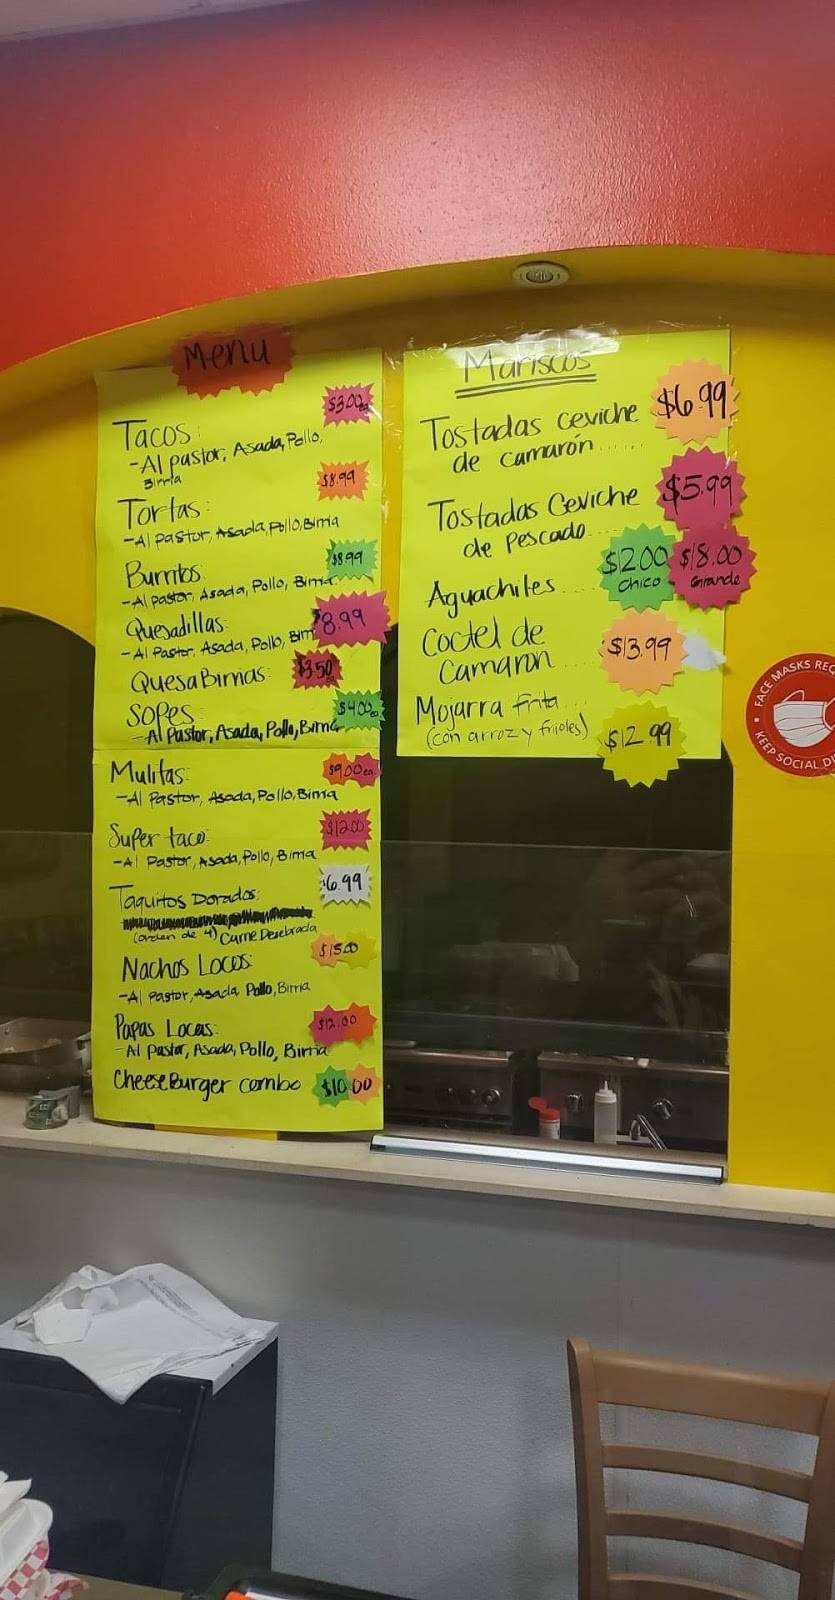 Menu
Tacos: $3.00 ea
-Al pastor, Asada, Pollo,
Birria
Tortas: $8.99
-Al Pastor, Asada, Pollo, Birria
Burritos: $8.99
-Al pastor, Asada, Pollo, Birria
Quesadillas: $8.99
-Al Pastor, Asada, Pollo, Birri
QuesaBirrias: $3.50 ea
Sopes $4.00 ea
-Al Pastor, Asada, Pollo, Birria
Mulitas: $9.00 ea
-Al Pastor, Asada, Pollo, Birria
Super taco: $12.00
-Al Pastor, Asada, Pollo, Birria
Taquitos Dorados: $6.99
(orden de 4) Carne Desebrada
Nachos Locos: $15.00
-Al Pastor, Asada, Pollo, Birria
Papas Locas: $12.00
-Al Pastor, Asada, Pollo, Birria
CheeseBurger combo $10.00
Mariscos
Tostadas ceviche $6.99
de camarón......
Tostadas Ceviche $5.99
de Pescado...
Aguachiles.... $12.00 Chico $18.00 Grande
Coctel de $13.99
Camaron....
Mojarra frita...
(con arroz y frijoles) $12.99
FACE MASKS REQ
KEEP SOCIAL DI